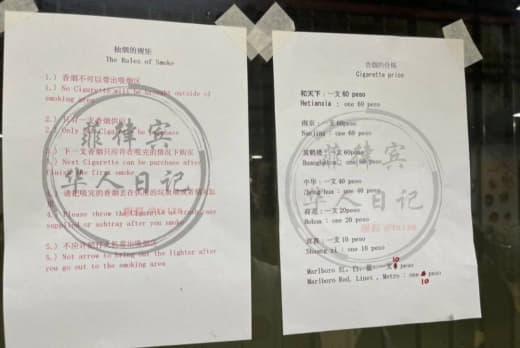 抽烟的规矩
The Rules of Smoke
1.) 香烟不可以带出吸烟区
1.) No Cigarette will be brought outside of
smoking area
2.) 只有一支香烟供应
2.) Only
3.) 下一支香烟只应许在吸完的情况下购买
3.) Next Cigarette can be purchase after
finish the first smoke
4.) Please throw the Cigarette
supplied or ashtray after you smoke
5.) 不应许
5.) Not arrow to bring out the lighter after
you go out to the smoking area
菲律宾
华人日记
香烟的价格
Cigarette price
和天下：一支60 peso
Hetiansia : one 60 peso
南京：一支60peso
Nanjing : one 60 peso
黄鹤楼：一支60peso
one 60 peso
中华：一支 40 peso
Zhonghua : one 40 peso
荷花：一支20peso
one 20 peso
一支10 peso
one 10 peso
Marlboro 红，白，蓝：一支 10 peso
Marlboro Red, Lines, Metro : one peso
10
菲律宾
华人日记